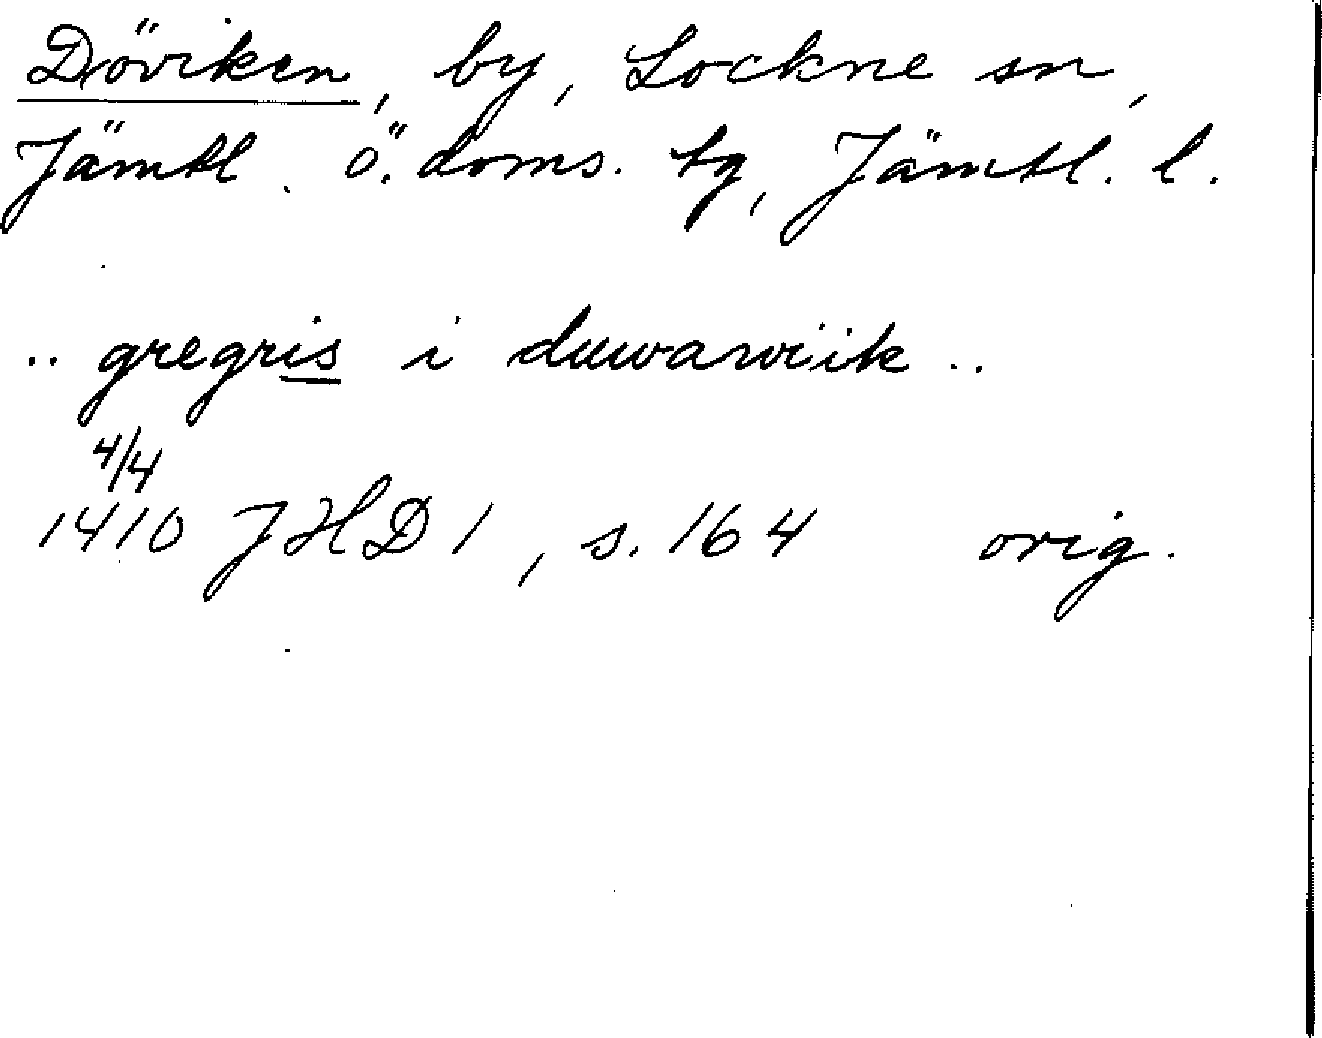 Döviken, by, Lockne sn,
Jämtl. ö. doms. tg, Jämtl. l.
.. gregris i duwarwiik ..
4/4
1410 JHD 1, s. 164 orig.